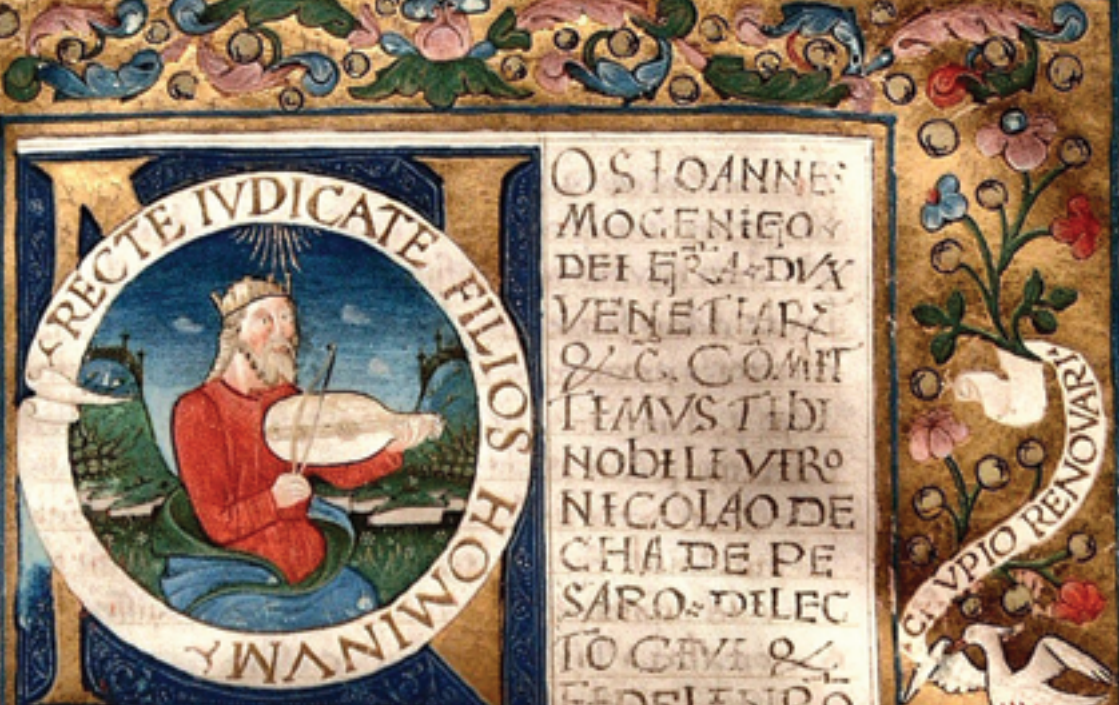 RECTE IVDICATE FILIOS HOMINVM
NOS IOANNES
MOCENIGO
DEI GRA DVX
VENETIARZ
& C. COMIT
TIMVS TIBI
NOBILI VIRO
NICOLAO DE
CHA DE PE
SARO DILEC
TO CIVI &
FIDELI NRO
CVPIO RENOVARI